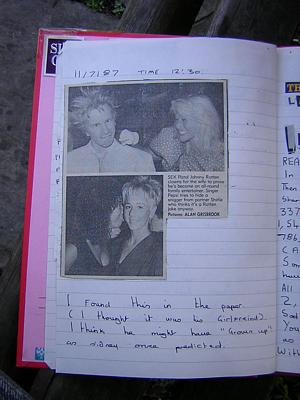 11/7/87 TIME 12:30.
SEX Pistol Johnny Rotten
clowns for the wife to prove
he's become an all-round
family entertainer. Singer
Pepsi tries to hide a
snigger from partner Shirlie
who thinks it's a Rotten
joke anyway.
Pictures: ALAN GRISBROOK
I Found this in the paper.
(I thought it was his Girlfreind).
I think he might have "Grown up"
as sidney once predicted.
REA
In
Then
Shar
337
1,54
786
CA
So
have
All
2,
Sad
You
as
With